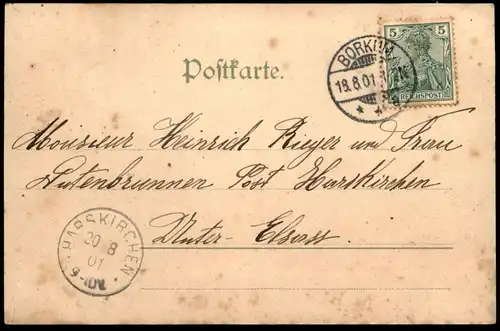 5 5
REICHSPOST
BORKUM
18.8.01
a
* *
Postkarte.
Monsieur Heinrich Rieger und Frau
Lutenbrunnen Post Harskirchen
Unter-Elsass
HARSKIRCHEN
20 8
01